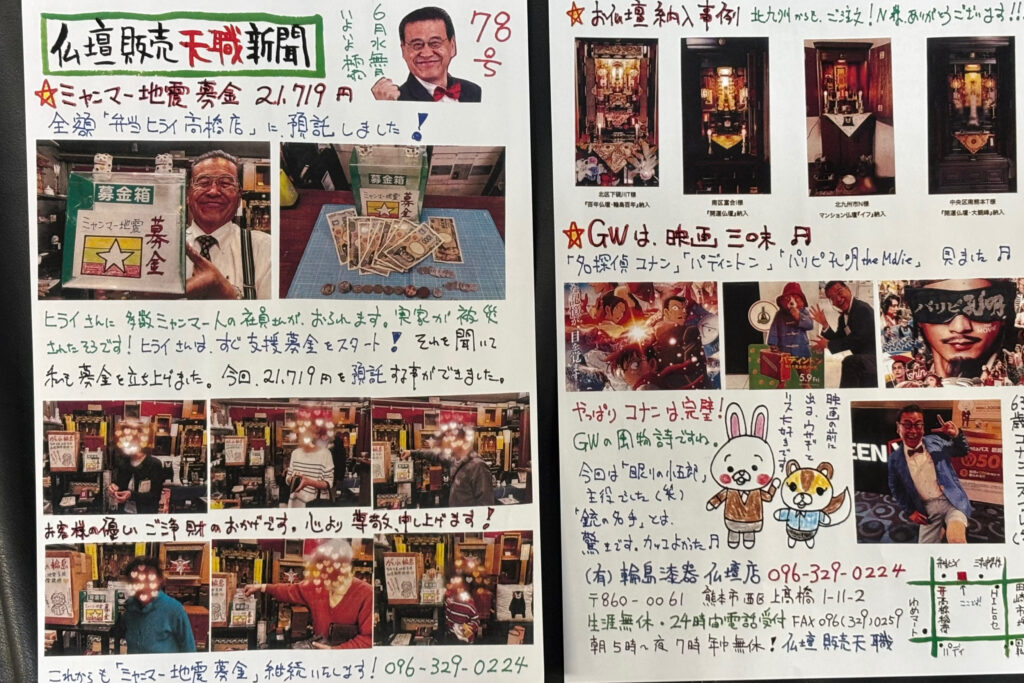 仏壇販売天職新聞
6月水無月
いよいよ梅雨
78号
ミャンマー地震募金 21,719円
全額「弁当ヒライ高橋店」に、預託しました!
募金箱
ミャンマー地震
募金
募金箱
ミャンマー地震
募金
ヒライさんに多数ミャンマー人の社員さんが、おられます。実家が被災
されたそうです!ヒライさんは、すぐ支援募金をスタート!それを聞いて
私も募金を立ち上げました。今回、21,719円を預託す事ができました。
お客様の優しいご浄財のおかげです。心より尊敬申し上げます!
これからも「ミャンマー地震募金」継続いたします! 096-329-0224
お仏壇納入事例 北九州からも、ご注文!N様、ありがとうございます!!
北区下硯川T様
『百年仏壇・輪島百年』納入
南区富合I様
『開運仏壇』納入
北九州市N様
マンション仏壇『イフ』納入
中央区南熊本T様
『開運仏壇・大観峰』納入
GWは、映画三昧♬
「名探偵コナン」「パディントン」「パリピ孔明the Movie」見ました♬
パリピ孔明
パディントン
5.9 Fri
やっぱりコナンは完璧!
GWの風物詩ですね。
今回は「眠りの小五郎」
主役でした(笑)
「銃の名手」とは、
驚きです。カッコよかった♬
映画の前に
出る、ウサギと
リス大好きです
(有)輪島漆器仏壇店 096-329-0224
〒860-0061 熊本市西区上高橋1-11-2
生涯無休・24時間電話受付 FAX096(329)0259
朝5時~夜7時年中無休!仏壇販売天職
ゆめマート